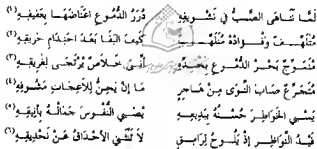 لَمَّا تَنَاهَى الصَّبُّ فِي تَشْوِيقِهِ دُرَرُ الدُّمُوعِ اعْتَاضَهَا بِعَقِيقِهِ (١)
مُتَلَهِّفٌ وَفُؤَادُهُ مُتَلَهِّبٌ كَيْفَ الْبَقَا بَعْدَ احْتِدَامِ حَرِيقِهِ (٢)
مُتَمَوِّجٌ بَحْرُ الدُّمُوعِ بِخَدِّهِ أَنَّى خَلَاصٌ يُرْتَجَى لِغَرِيقِهِ (٣)
مُتَجَرِّعٌ صَابَ النَّوَى مِنْ هَاجِرٍ مَا إِنْ يَحِنُّ لِلَاعِجَاتِ مَشُوقِهِ (٤)
يَسْبِي الْخَوَاطِرَ حُسْنُهُ بِبَدِيعِهِ يُصْبِي النُّفُوسَ جَمَالُهُ بِأَنِيقِهِ (٥)
قَيْدُ النَّوَاظِرِ إِذْ يَلُوحُ لِرَامِقٍ لَا تَنْثَنِي الْأَحْدَاقُ عَنْ تَحْدِيقِهِ (٦)